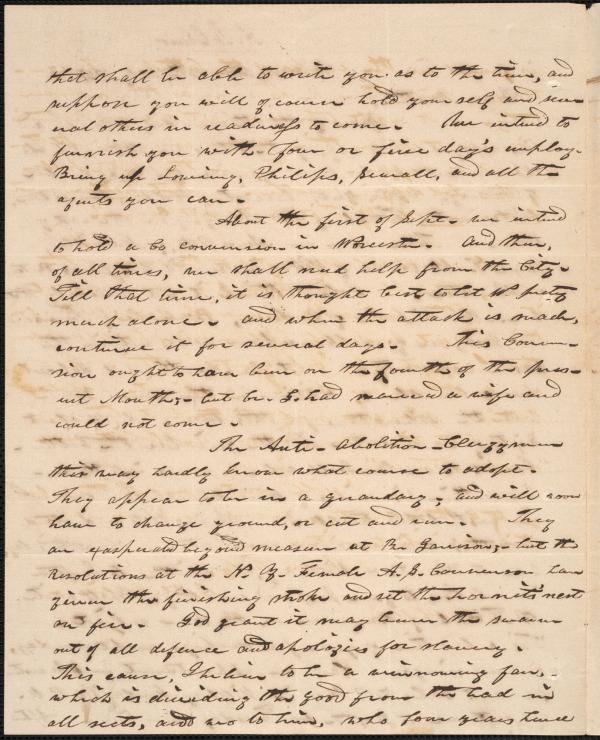 that shall be able to write you as to the time, and
suppose you will of course hold yourself and sev-
eral others in readiness to come. We intend to
furnish you with four or five day's employ-
Bring up Loring, Philips, Sewall, and all the
agents you can.
About the first of Sept. we intend
to hold a Co convension in Worcester. And then,
of all times, we shall need help from the City.
Till that time, it is thought best to let W. pretty
much alone. and when the attack is made,
continue it for several days. This Conven-
sion ought to have been on the fourth of the pres-
ent Month;- but br. G. had married a wife and
could not come.
The Anti-Abolition-Clergymen
this way hardly know what course to adopt.
They appear to be in a quandary; and will soon
have to change ground, or cut and run. They
are exasperated beyond measure at Br Garrison;- but the
resolutions at the N. Y. Female A. S. Convension have
given the finishing stroke and set the hornit's nest
on fire. God grant it may burn the swarm
out of all defence and apologies for slavery.
This cause, I believe to be a winnowing fan,
which is dividing the good from the bad in
all sects, and wo to him, who four years hence